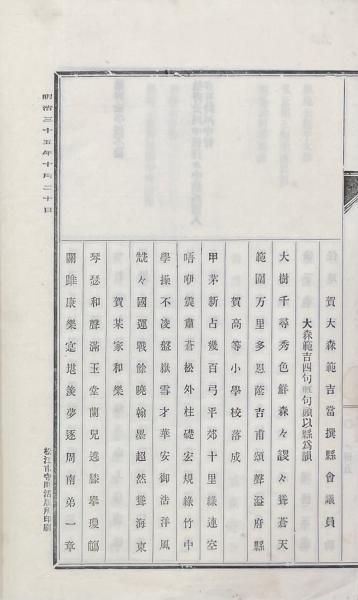 賀大森範吉當撰縣會議員
大森範吉四句
句頭以縣爲韻
大樹千尋秀色鮮森々謖々聳蒼天
範圍万里多恩蔭吉甫頌聲溢府縣
賀高等小學校落成
甲茅新占幾百弓平郊十里綠連空
唔咿震肅蒼松外柱礎宏規綠竹中
學操不凌盤嶽雪才華安御浩洋風
兢々國運戰餘曉翰墨超然聳海東
賀某家和樂
琴瑟和聲滿玉堂蘭兒遶膝擧慶觴
關雎康樂寔堪羨夢逐周南弟一章
明治三十五年十月二十日
松江市寺町活版所印刷